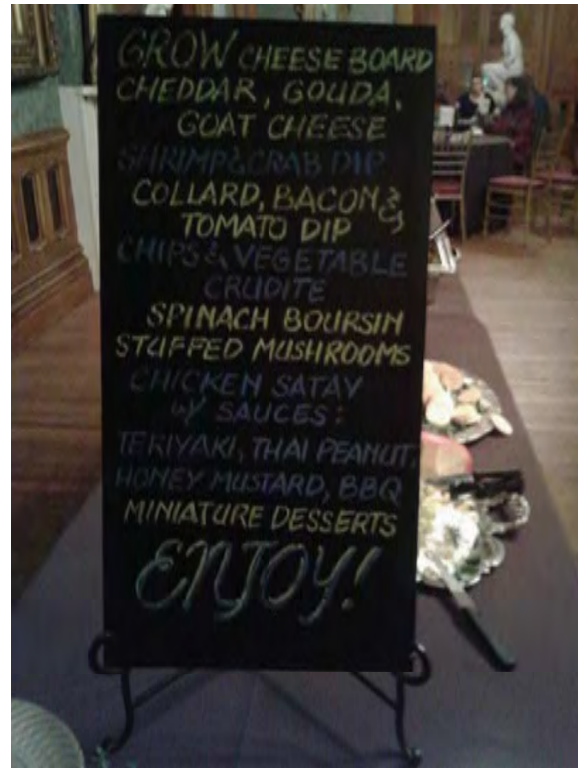 GROW CHEESE BOARD
CHEDDAR, GOUDA,
GOAT CHEESE
SHRIMP & CRAB DIP
COLLARD, BACON &
TOMATO DIP
CHIPS & VEGETABLE
CRUDITE
SPINACH BOURSIN
STUFFED MUSHROOMS
CHICKEN SATAY
W/ SAUCES:
TERIYAKI, THAI PEANUT,
HONEY MUSTARD, BBQ
MINIATURE DESSERTS
ENJOY!